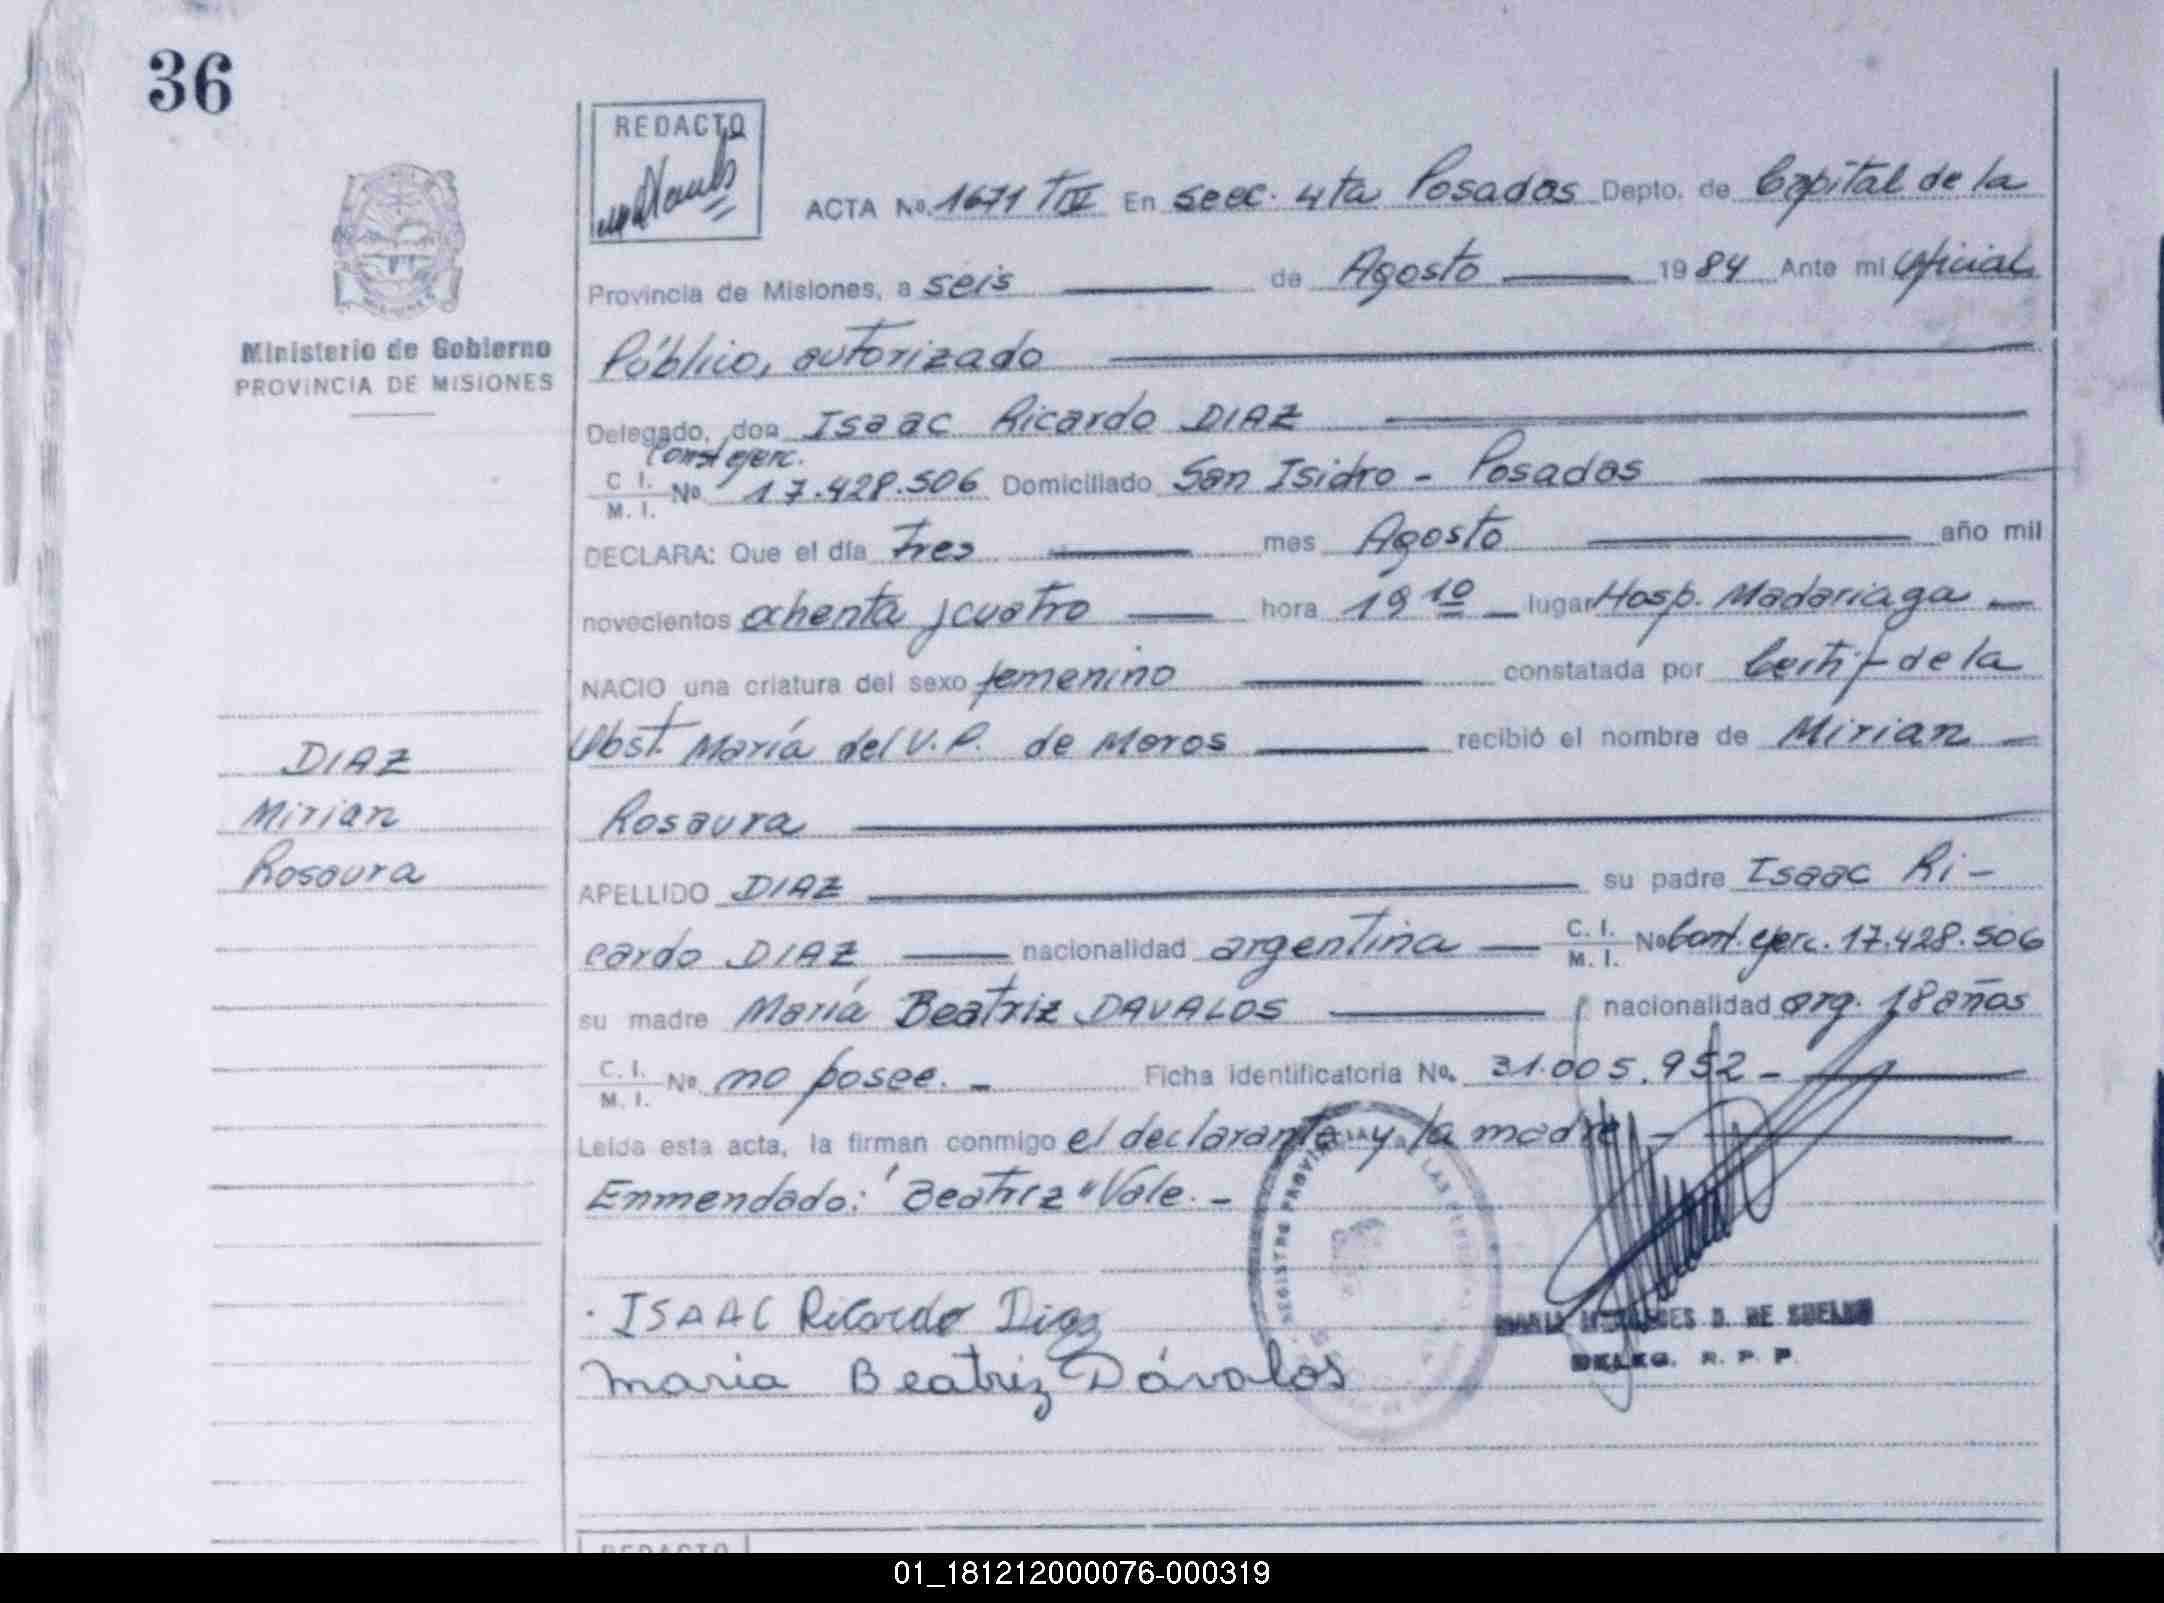 36
REDACTO
ACTA No. 1671 TIV En secc. 4ta Posadas Depto. de Capital de la
Provincia de Misiones, a seis de Agosto 1984 Ante mi Oficial
Ministerio de Gobierno
PROVINCIA DE MISIONES
Público, autorizado
Delegado, don Isaac Ricardo DIAZ
Const ejerc.
C. I.
M. I. No 17.428.506 Domiciliado San Isidro - Posadas
DECLARA: Que el día tres mes Agosto año mil
novecientos ochenta y cuatro hora 19 10 lugar Hosp. Madariaga
NACIO una criatura del sexo femenino constatada por Certif de la
Obst. María del V.P. de Moros recibió el nombre de Mirian
DIAZ
Mirian
Rosaura
Rosaura
APELLIDO DIAZ su padre Isaac Ri-
cardo DIAZ nacionalidad argentina C. I. M. I. No Const. ejerc. 17.428.506
su madre María Beatriz DAVALOS nacionalidad arg. 18 años
C. I.
M. I. No. no posee. - Ficha identificatoria No. 31.005.952 -
Leída esta acta, la firman conmigo el declarante y la madre -
Enmendado: "Beatriz" Vale. -
ISAAC Ricardo Diaz
maria Beatriz Dávalos
DELEG. R. P. P.
REGISTRO PROVINCIAL
REDACTO
01_181212000076-000319